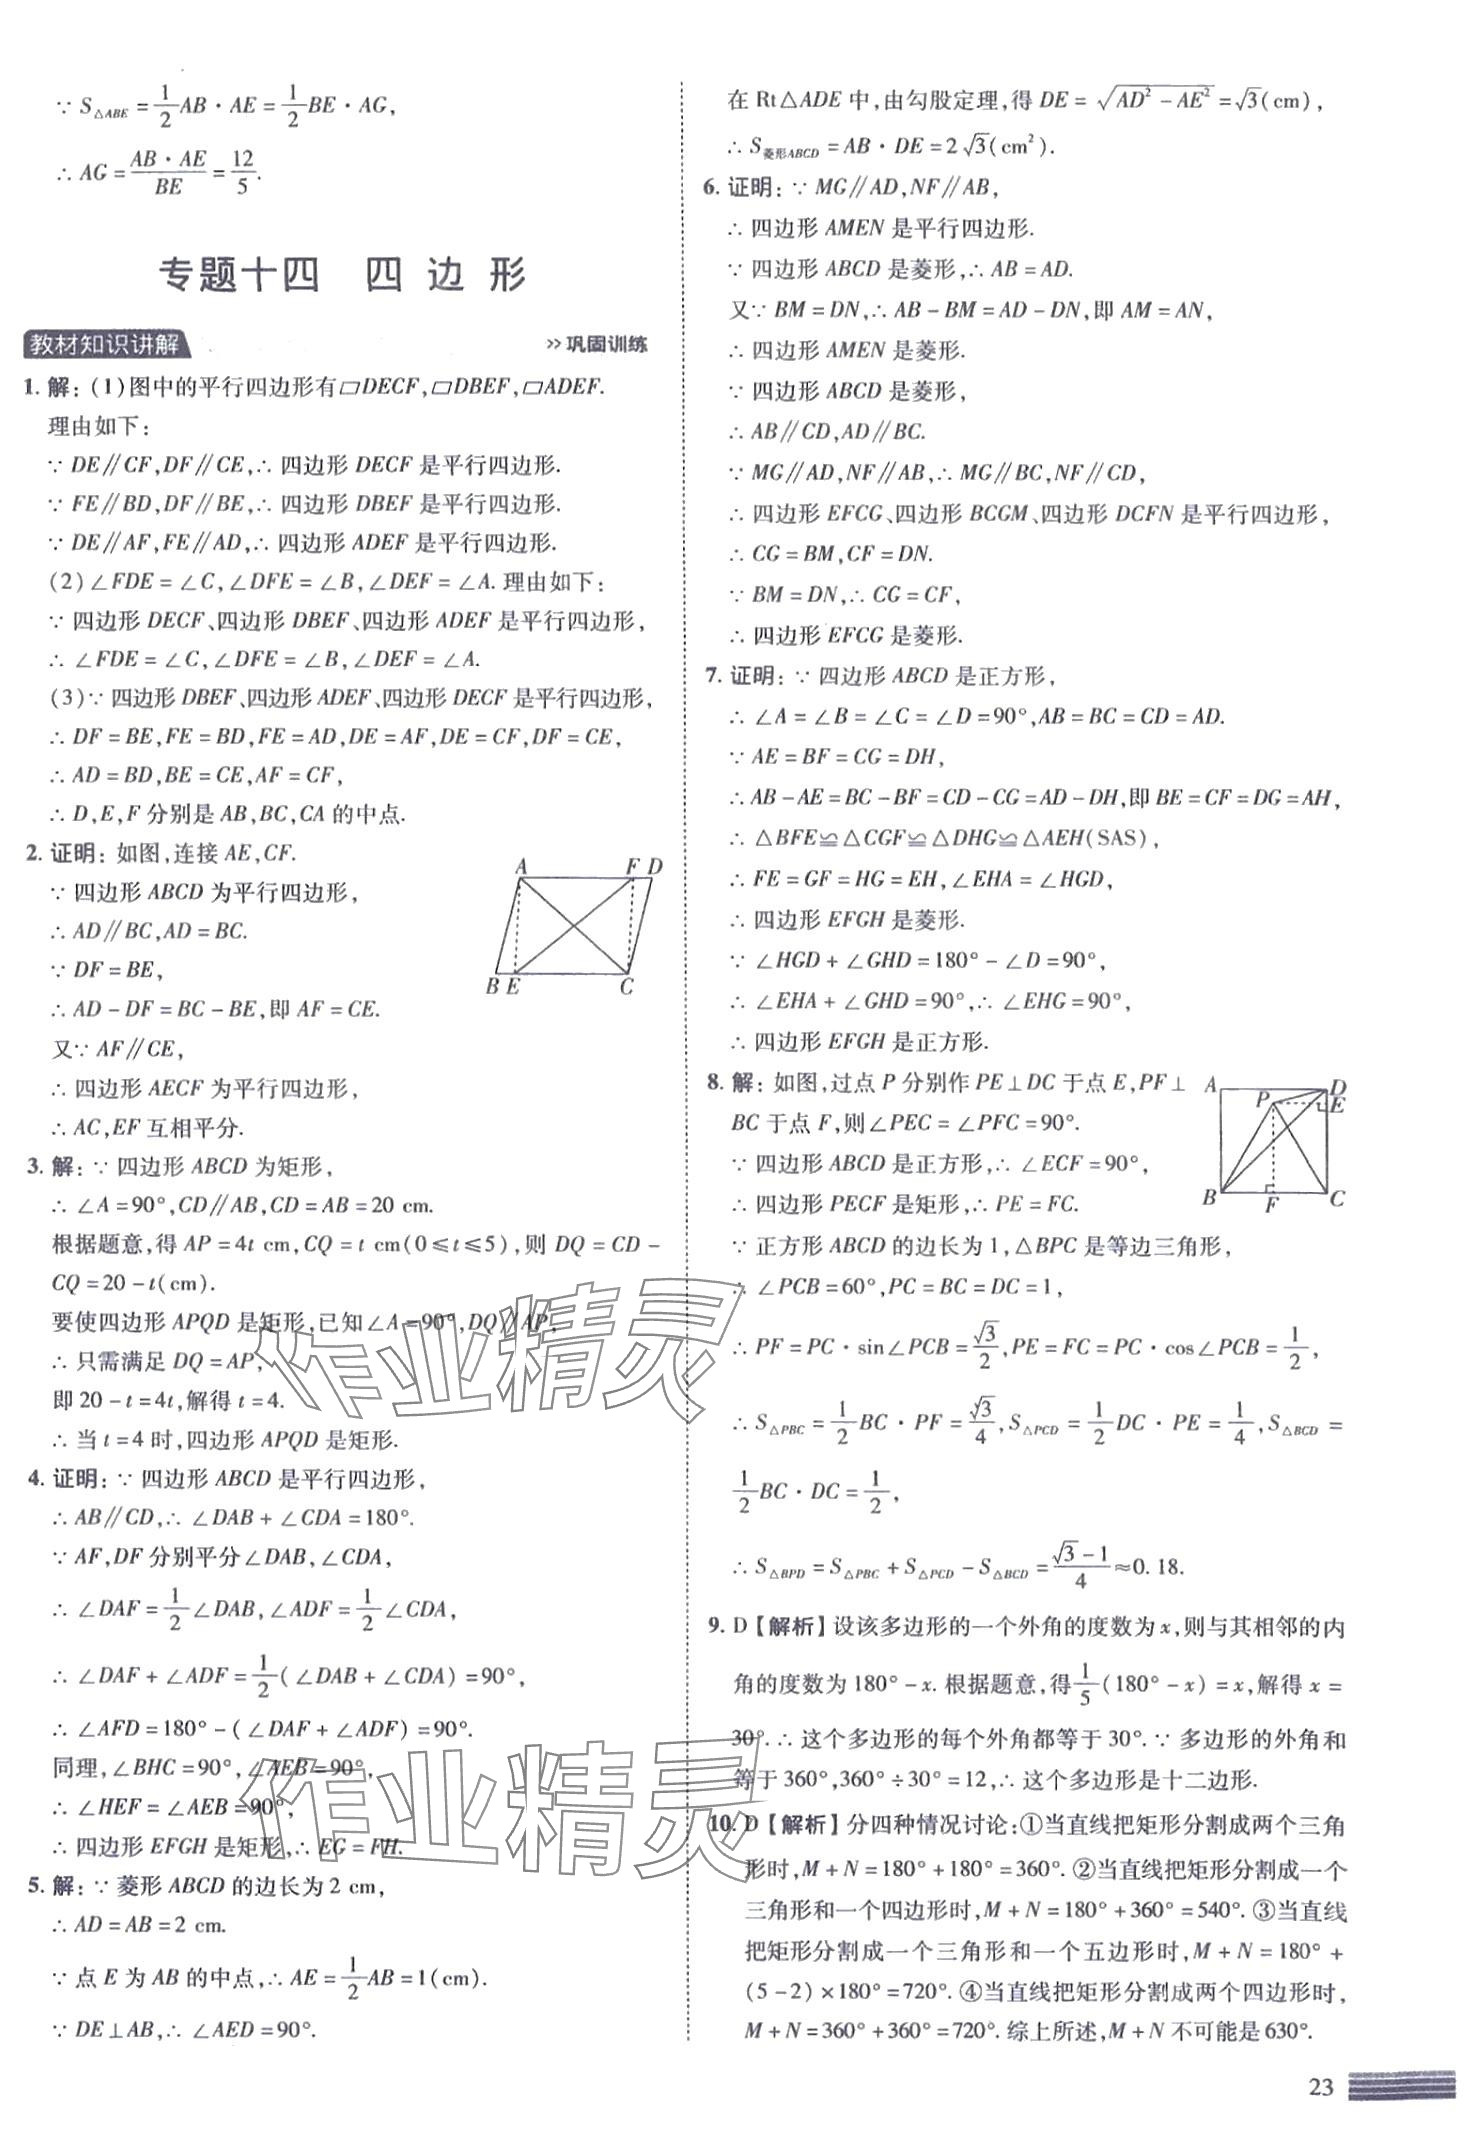 ∵ S△ABE = 1/2 AB · AE = 1/2 BE · AG,
∴ AG = AB · AE/BE = 12/5.
专题十四 四边形
教材知识讲解 >> 巩固训练
1. 解：(1)图中的平行四边形有▱DECF,▱DBEF,▱ADEF.
理由如下：
∵ DE∥CF,DF∥CE,∴ 四边形 DECF 是平行四边形.
∵ FE∥BD,DF∥BE,∴ 四边形 DBEF 是平行四边形.
∵ DE∥AF,FE∥AD,∴ 四边形 ADEF 是平行四边形.
(2)∠FDE = ∠C,∠DFE = ∠B,∠DEF = ∠A. 理由如下：
∵ 四边形 DECF、四边形 DBEF、四边形 ADEF 是平行四边形,
∴ ∠FDE = ∠C,∠DFE = ∠B,∠DEF = ∠A.
(3)∵ 四边形 DBEF、四边形 ADEF、四边形 DECF 是平行四边形,
∴ DF = BE,FE = BD,FE = AD,DE = AF,DE = CF,DF = CE,
∴ AD = BD,BE = CE,AF = CF,
∴ D,E,F 分别是 AB,BC,CA 的中点.
2. 证明：如图,连接 AE,CF.
∵ 四边形 ABCD 为平行四边形,
∴ AD∥BC,AD = BC.
∵ DF = BE,
∴ AD - DF = BC - BE,即 AF = CE.
又∵ AF∥CE,
∴ 四边形 AECF 为平行四边形,
∴ AC,EF 互相平分.
A F D
B E C
3. 解：∵ 四边形 ABCD 为矩形,
∴ ∠A = 90°,CD∥AB,CD = AB = 20 cm.
根据题意,得 AP = 4t cm,CQ = t cm(0 ≤ t ≤ 5),则 DQ = CD -
CQ = 20 - t(cm).
要使四边形 APQD 是矩形,已知∠A = 90°,DQ∥AP,
∴ 只需满足 DQ = AP,
即 20 - t = 4t,解得 t = 4.
∴ 当 t = 4 时,四边形 APQD 是矩形.
4. 证明：∵ 四边形 ABCD 是平行四边形,
∴ AB∥CD,∴ ∠DAB + ∠CDA = 180°.
∵ AF,DF 分别平分∠DAB,∠CDA,
∴ ∠DAF = 1/2 ∠DAB,∠ADF = 1/2 ∠CDA,
∴ ∠DAF + ∠ADF = 1/2 (∠DAB + ∠CDA) = 90°,
∴ ∠AFD = 180° - (∠DAF + ∠ADF) = 90°.
同理,∠BHC = 90°,∠AEB = 90°,
∴ ∠HEF = ∠AEB = 90°,
∴ 四边形 EFGH 是矩形,∴ EG = FH.
5. 解：∵ 菱形 ABCD 的边长为 2 cm,
∴ AD = AB = 2 cm.
∵ 点 E 为 AB 的中点,∴ AE = 1/2 AB = 1(cm).
∵ DE⊥AB,∴ ∠AED = 90°.
在 Rt△ADE 中,由勾股定理,得 DE = √(AD² - AE²) = √3(cm),
∴ S菱形ABCD = AB · DE = 2√3(cm²).
6. 证明：∵ MG∥AD,NF∥AB,
∴ 四边形 AMEN 是平行四边形.
∵ 四边形 ABCD 是菱形,∴ AB = AD.
又∵ BM = DN,∴ AB - BM = AD - DN,即 AM = AN,
∴ 四边形 AMEN 是菱形.
∵ 四边形 ABCD 是菱形,
∴ AB∥CD,AD∥BC.
∵ MG∥AD,NF∥AB,∴ MG∥BC,NF∥CD,
∴ 四边形 EFCG、四边形 BCGM、四边形 DCFN 是平行四边形,
∴ CG = BM,CF = DN.
∵ BM = DN,∴ CG = CF,
∴ 四边形 EFCG 是菱形.
7. 证明：∵ 四边形 ABCD 是正方形,
∴ ∠A = ∠B = ∠C = ∠D = 90°,AB = BC = CD = AD.
∵ AE = BF = CG = DH,
∴ AB - AE = BC - BF = CD - CG = AD - DH,即 BE = CF = DG = AH,
∴ △BFE≌△CGF≌△DHG≌△AEH(SAS),
∴ FE = GF = HG = EH,∠EHA = ∠HGD,
∴ 四边形 EFGH 是菱形.
∵ ∠HGD + ∠GHD = 180° - ∠D = 90°,
∴ ∠EHA + ∠GHD = 90°,∴ ∠EHG = 90°,
∴ 四边形 EFGH 是正方形.
8. 解：如图,过点 P 分别作 PE⊥DC 于点 E,PF⊥
BC 于点 F,则∠PEC = ∠PFC = 90°.
∵ 四边形 ABCD 是正方形,∴ ∠ECF = 90°,
∴ 四边形 PECF 是矩形,∴ PE = FC.
A D
P E
B F C
∵ 正方形 ABCD 的边长为 1,△BPC 是等边三角形,
∴ ∠PCB = 60°,PC = BC = DC = 1,
∴ PF = PC · sin∠PCB = √3/2,PE = FC = PC · cos∠PCB = 1/2,
∴ S△PBC = 1/2 BC · PF = √3/4,S△PCD = 1/2 DC · PE = 1/4,S△BCD =
1/2 BC · DC = 1/2,
∴ S△BPD = S△PBC + S△PCD - S△BCD = (√3 - 1)/4 ≈ 0.18.
9. D【解析】设该多边形的一个外角的度数为 x,则与其相邻的内
角的度数为 180° - x. 根据题意,得 1/5 (180° - x) = x,解得 x =
30°. ∴ 这个多边形的每个外角都等于 30°. ∵ 多边形的外角和
等于 360°,360° ÷ 30° = 12,∴ 这个多边形是十二边形.
10. D【解析】分四种情况讨论：①当直线把矩形分割成两个三角
形时,M + N = 180° + 180° = 360°. ②当直线把矩形分割成一个
三角形和一个四边形时,M + N = 180° + 360° = 540°. ③当直线
把矩形分割成一个三角形和一个五边形时,M + N = 180° +
(5 - 2) × 180° = 720°. ④当直线把矩形分割成两个四边形时,
M + N = 360° + 360° = 720°. 综上所述,M + N 不可能是 630°.
作业精灵
作业精灵
23